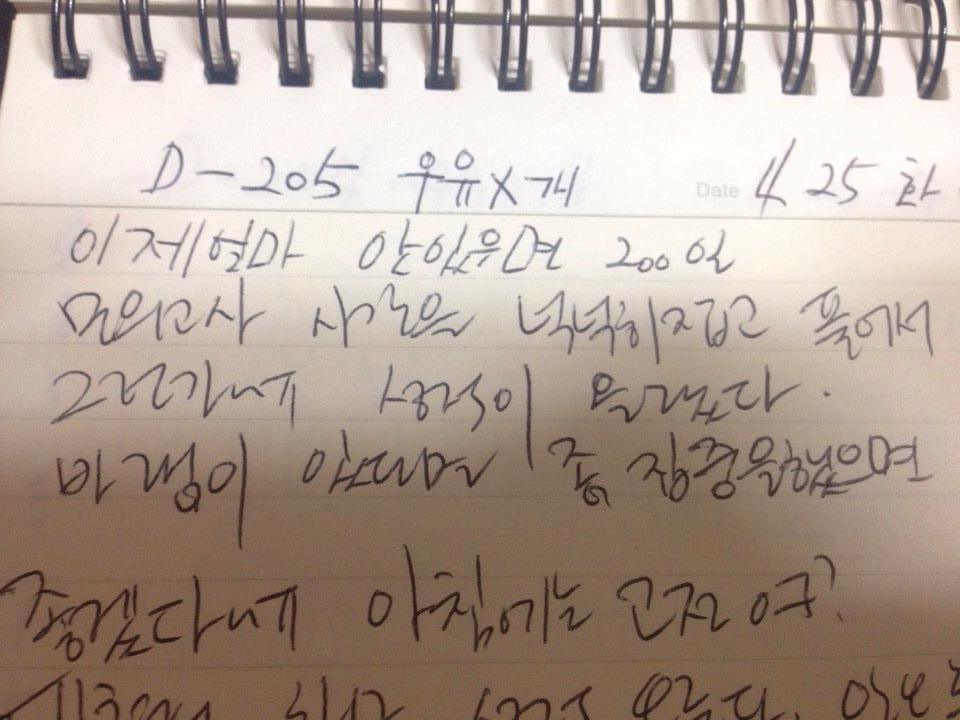 D-205 우유X개 Date 4/25 화
이제얼마 안있으면 200일
모의고사 시간을 넉넉히잡고 풀어서
그런가네 성적이 올랐다.
바램이 있다면 좀 집중을했으면
좋겠다네 아침에는